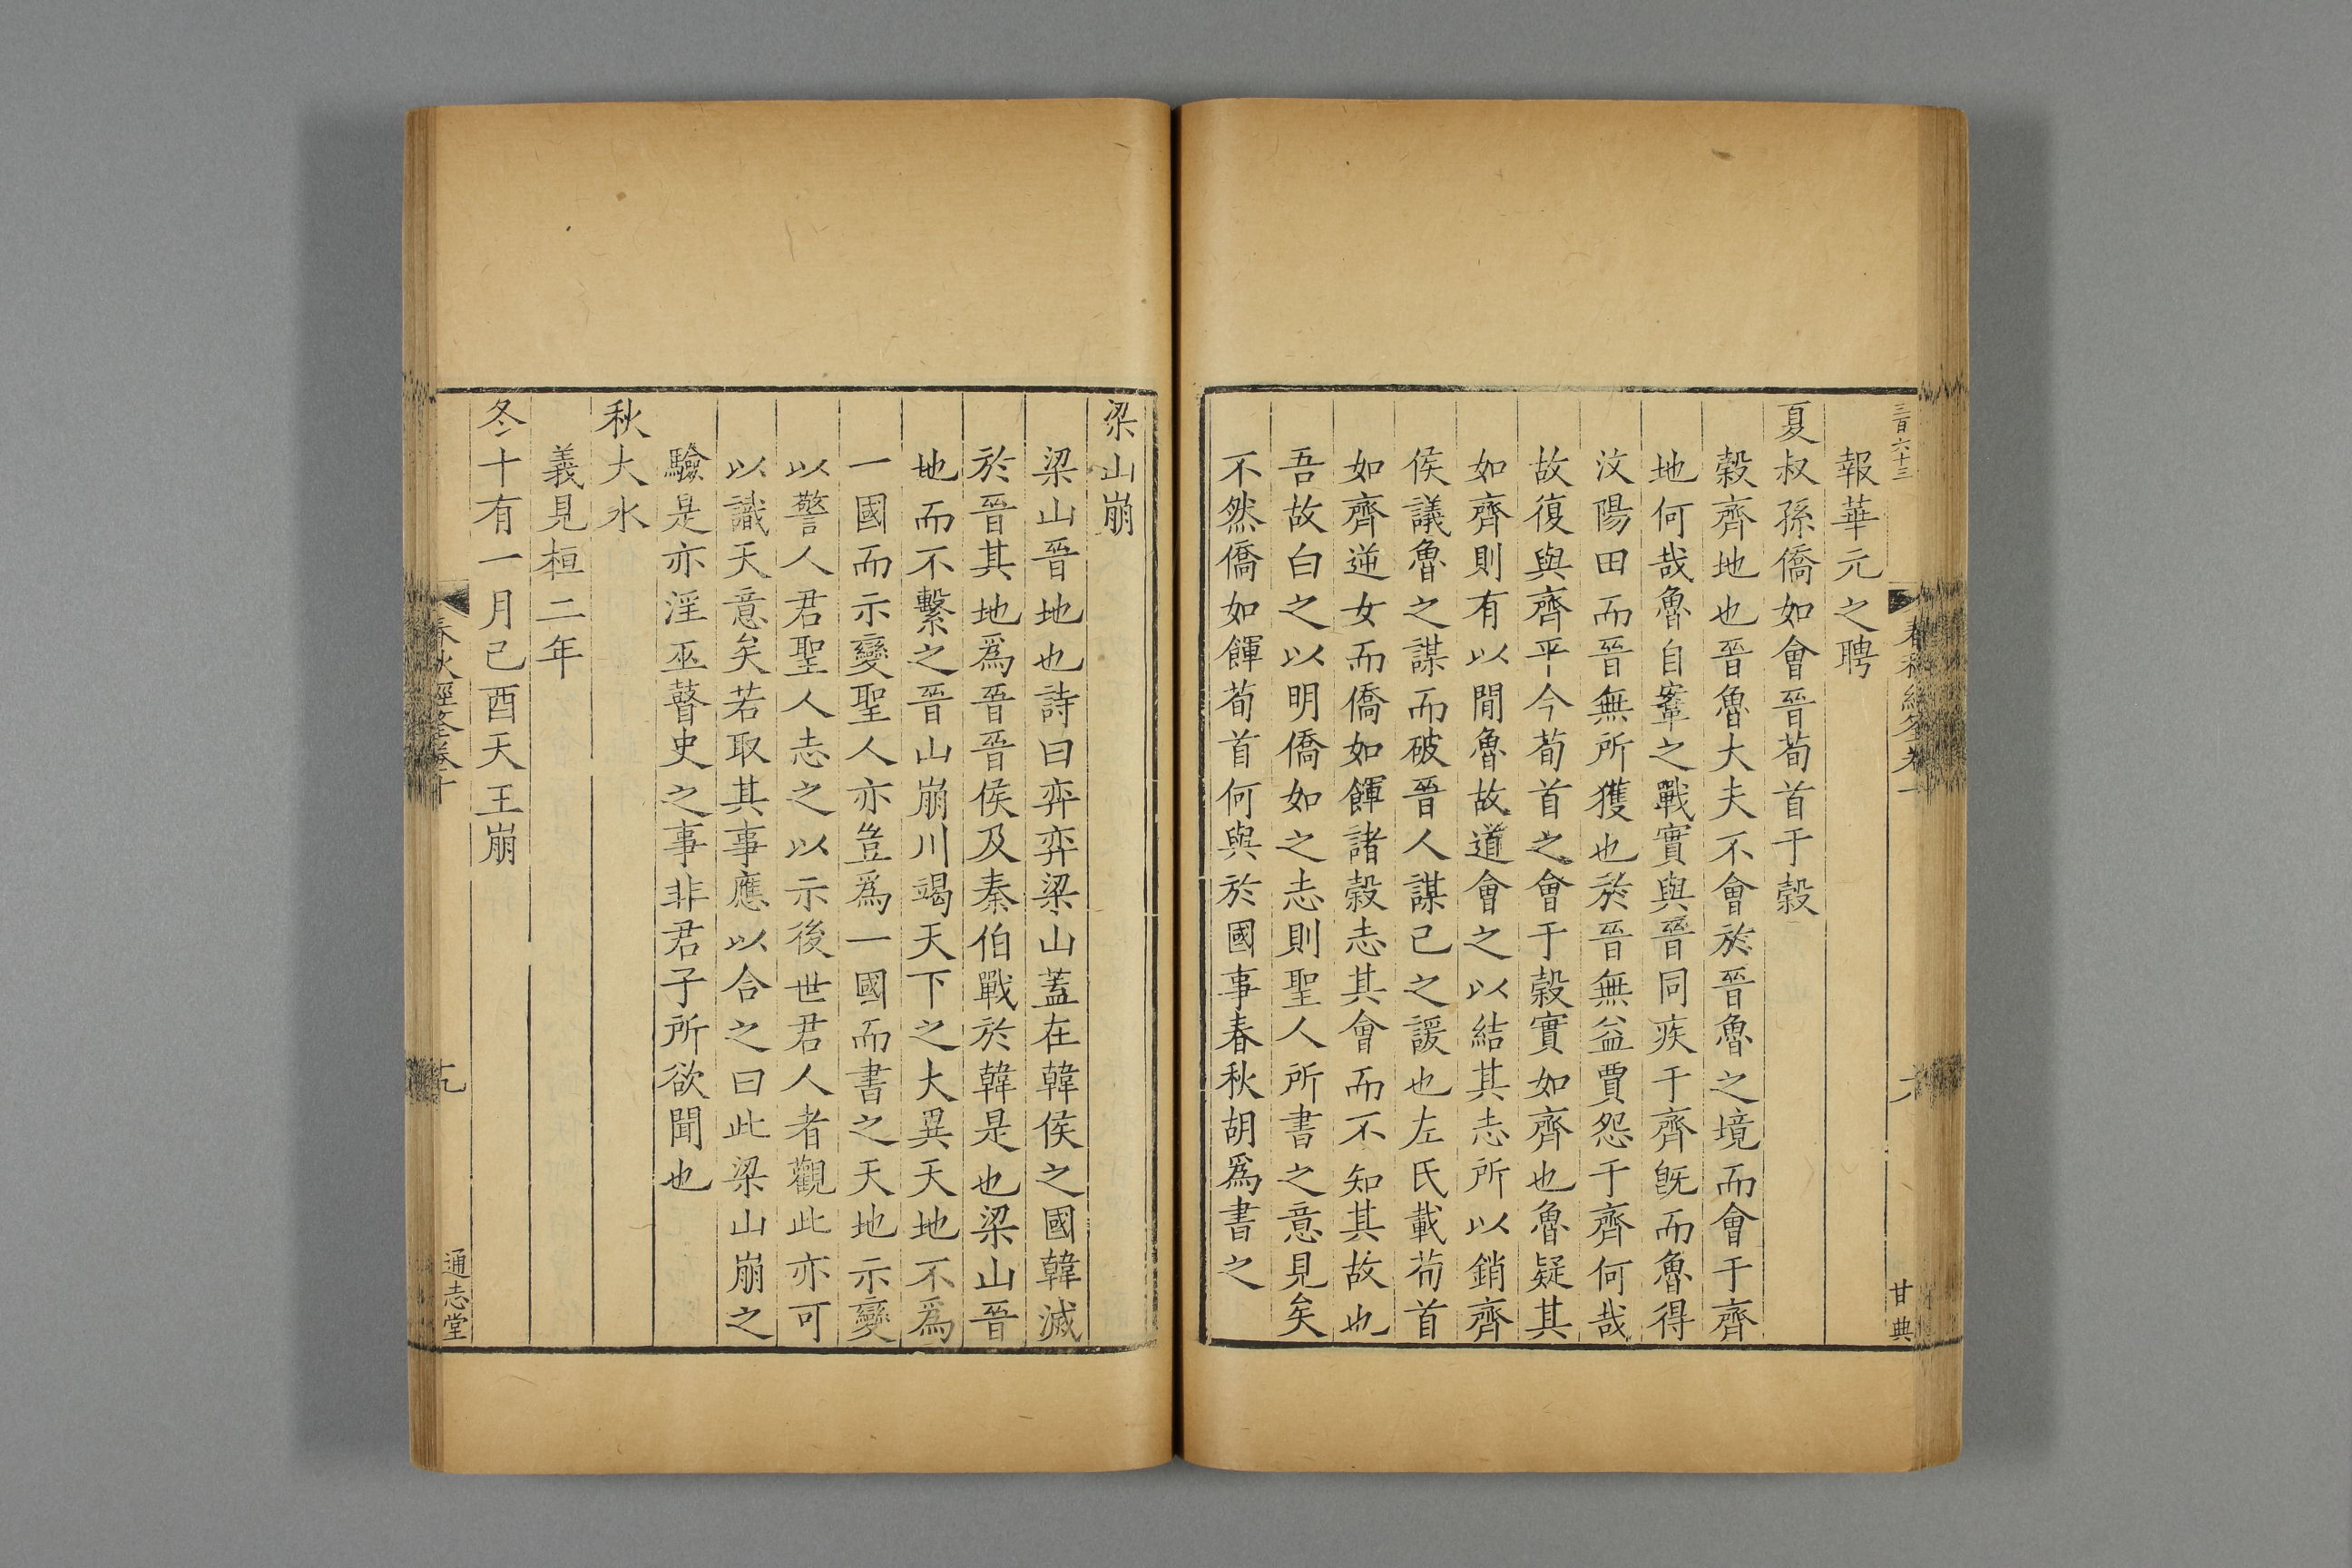 三百六十三
報華元之聘
夏叔孫僑如會晉荀首于穀
穀齊地也晉魯大夫不會於晉魯之境而會于齊
地何哉魯自鞌之戰實與晉同疾于齊旣而魯得
汶陽田而晉無所獲也於晉無益賈怨于齊何哉
故復與齊平今荀首之會于穀實如齊也魯疑其
如齊則有以閒魯故道會之以結其志所以銷齊
侯議魯之謀而破晉人謀己之諼也左氏載荀首
如齊逆女而僑如餫諸穀志其會而不知其故也
吾故白之以明僑如之志則聖人所書之意見矣
不然僑如餫荀首何與於國事春秋胡爲書之
甘典
梁山崩
梁山晉地也詩曰弈弈梁山蓋在韓侯之國韓滅
於晉其地爲晉晉侯及秦伯戰於韓是也梁山晉
地而不繫之晉山崩川竭天下之大異天地不爲
一國而示變聖人亦豈爲一國而書之天地示變
以警人君聖人志之以示後世君人者觀此亦可
以識天意矣若取其事應以合之曰此梁山崩之
驗是亦淫巫瞽史之事非君子所欲聞也
秋大水
義見桓二年
冬十有一月己酉天王崩
春秋經筌卷十
通志堂